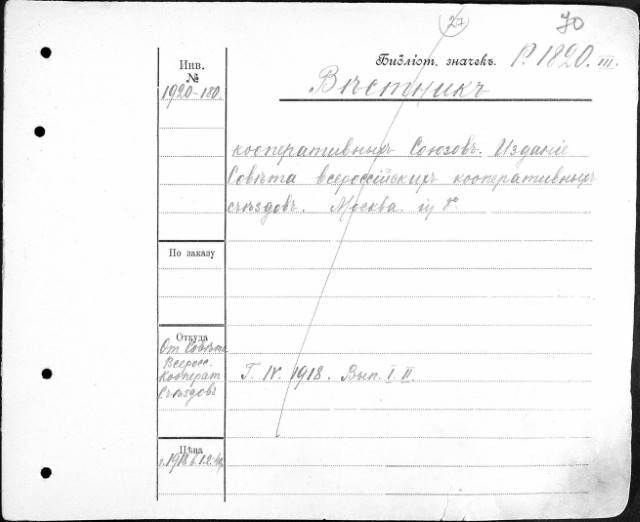 27
70
Библіот. значекъ. P. 1820. III.
Инв.
№
1920-180.
Вѣстникъ
кооперативныхъ Союзовъ. Изданіе
Совѣта всероссійскихъ кооперативныхъ
съѣздовъ. Москва. in 8°.
По заказу
Откуда
От Совѣта
Всеросс.
Кооперат
Съѣздовъ
Г. IV. 1918. Вып. I. II.
Цѣна
г. 1918 в. 1.2.